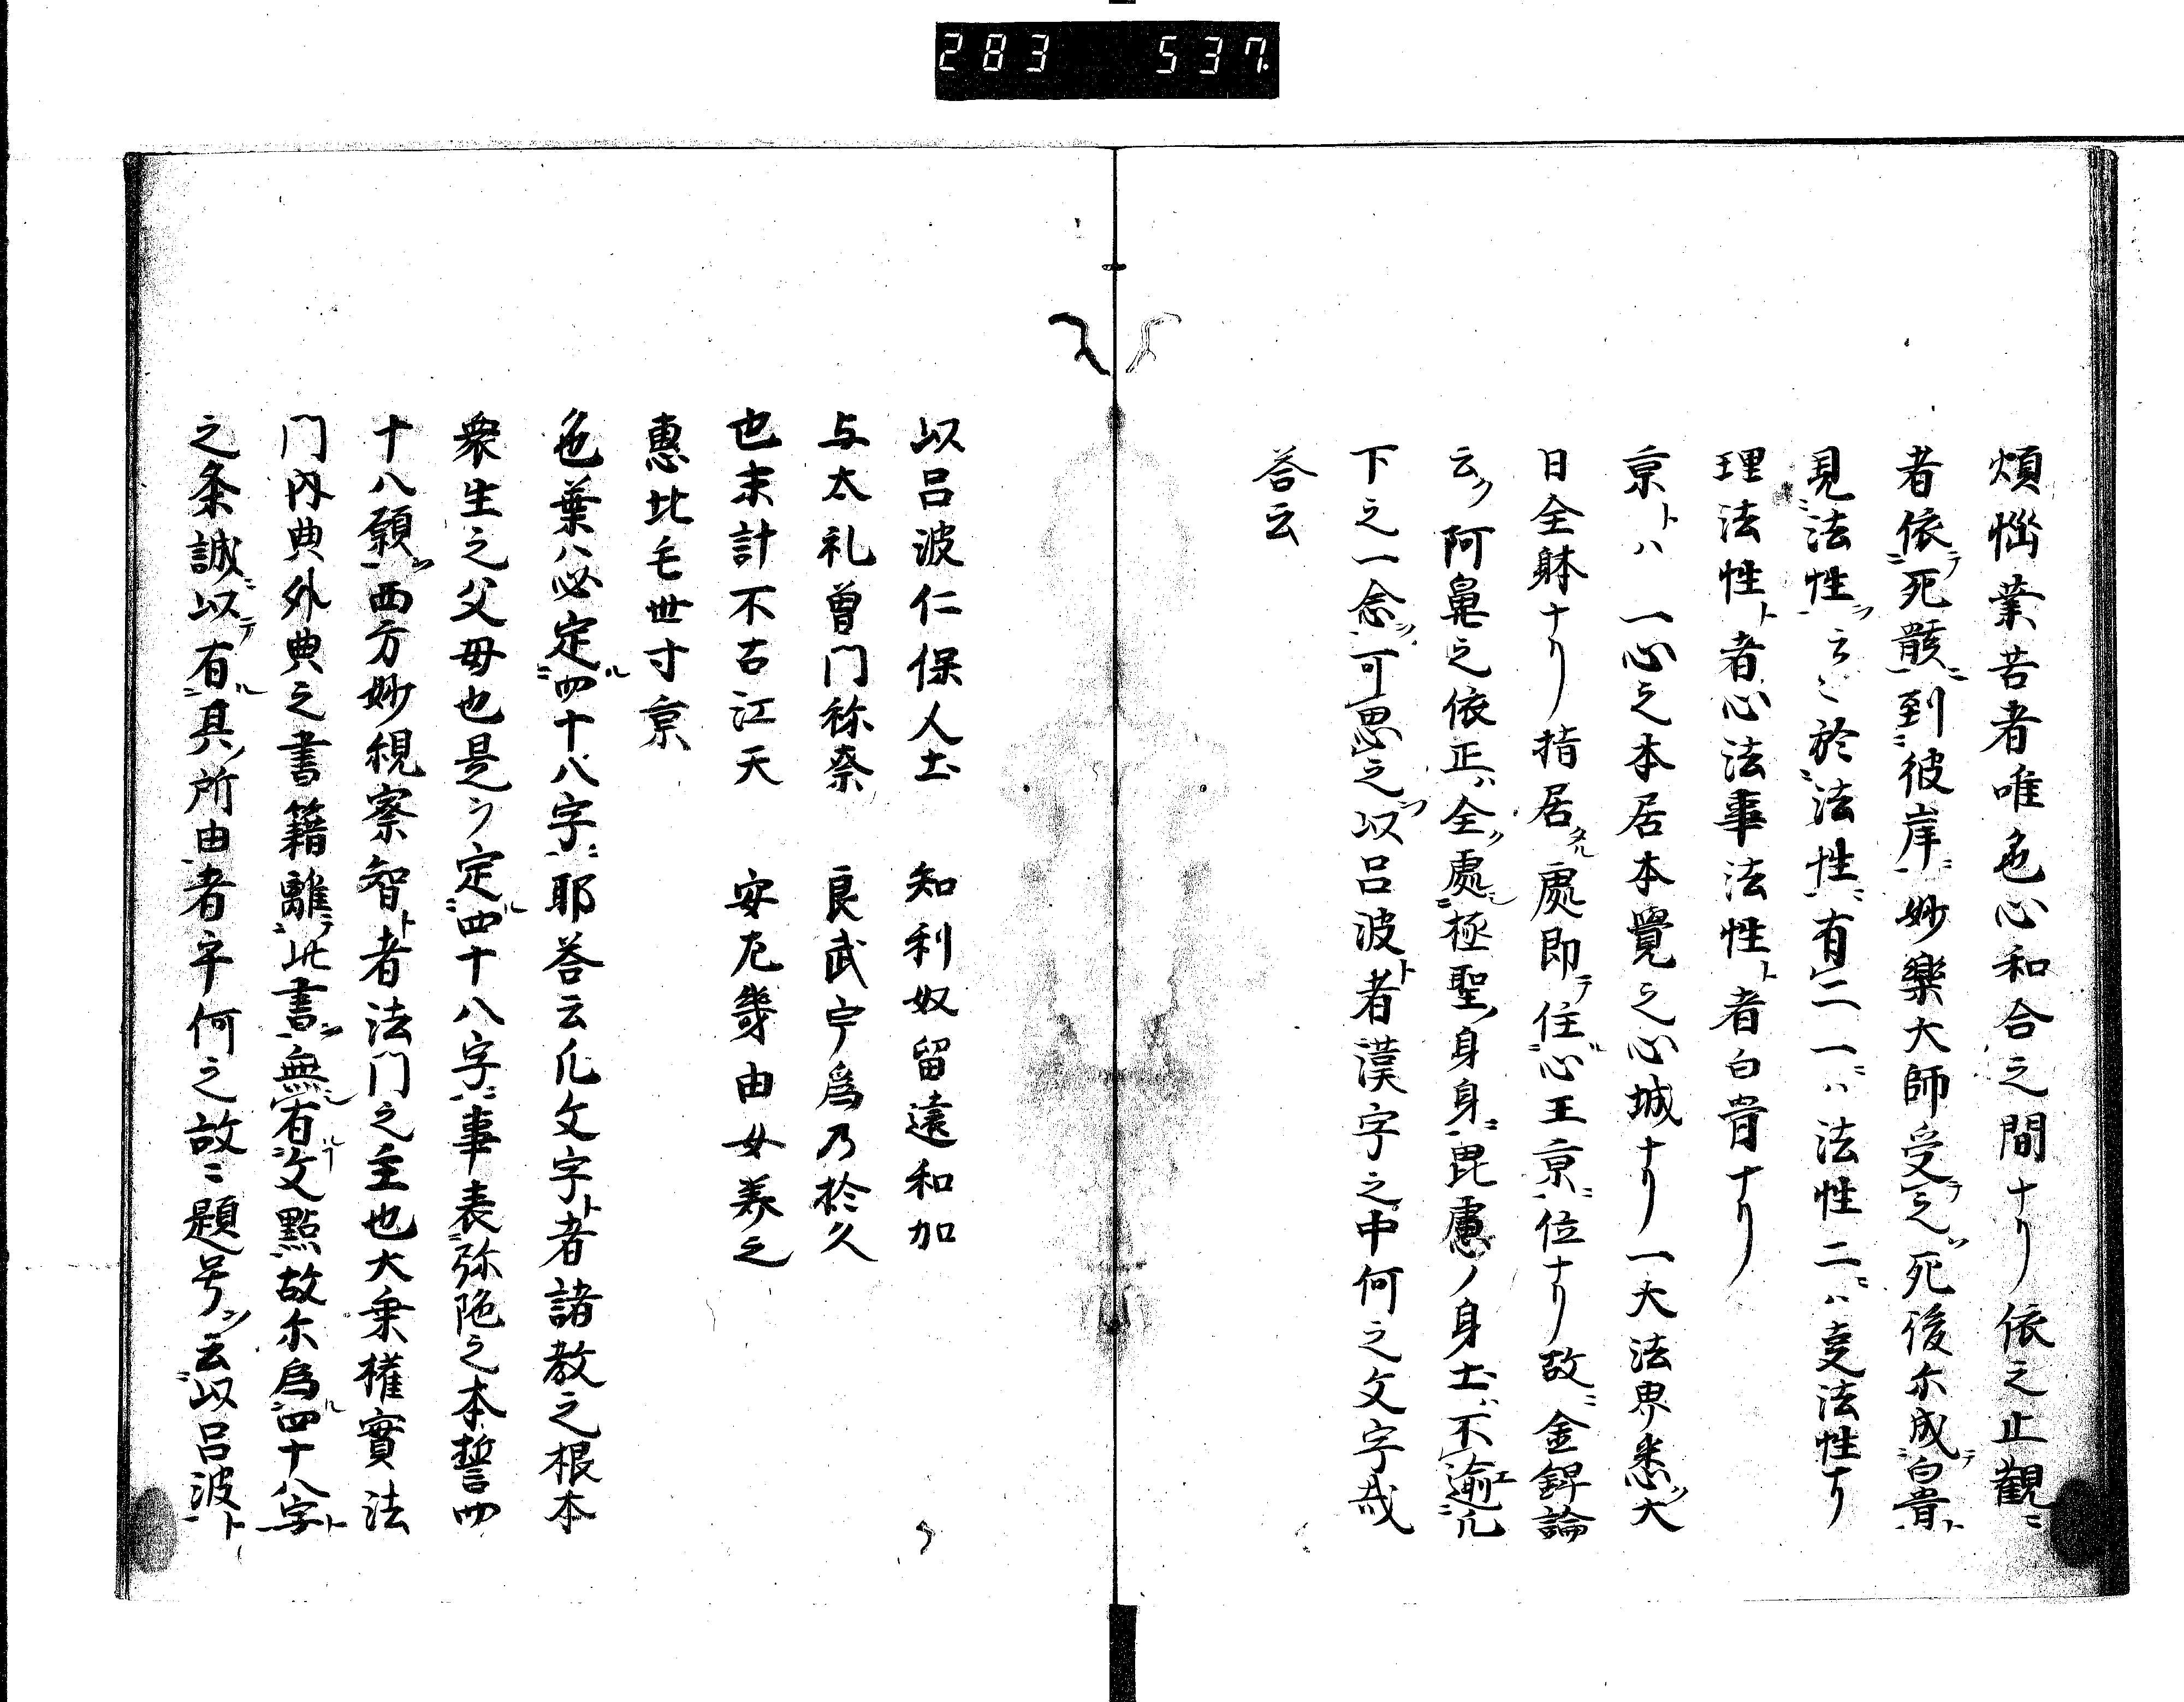 283 537
煩悩業苦者唯色心和合之間ナリ依之止観ニ
者依テ死骸ニ到彼岸ニ妙樂大師受テ之ヲ死後尓成テ白骨ト
見法性ヲ云云於法性ニ有二一ニハ法性二ニハ変法性ナリ
理法性ト者心法事法性ト者白骨ナリ
京トハ一心之本居本覺之心城ナリ一天法界悉ク大
日全躰ナリ指居タル處即テ住心王京ニ位ナリ故ニ金錍論
云ク阿鼻之依正ハ全ク處シ極聖ノ身身ニ毘盧ノ身土ハ不逾エ凡
下之一念ヲ可思之ヲ以呂波ト者漢字之中何之文字哉
答云
以呂波仁保人土 知利奴留遠和加
与太礼曽門祢奈 良武宇為乃於久
也末計不古江天 安左幾由女美之
恵比毛世寸京
色葉ハ必定ル四十八字ニ耶答云凡文字ト者諸教之根本
衆生之父母也是ヲ定ル四十八字ニ事表弥陀之本誓四
十八願ヲ西方妙観察智ト者法門之主也大乗権實法
門内典外典之書籍離テ此書ヲ無シ有ルヿ文點故尓為ル四十八字ト
之条誠ニ以テ有ル具ノ所由者乎何之故ニ題号ヲ云以呂波ト